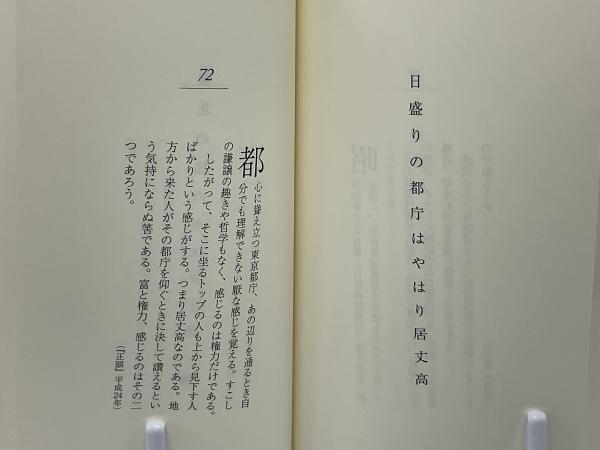 日盛りの都庁はやはり居丈高
72
都心に聳え立つ東京都庁、あの辺りを通るとき自
分でも理解できない厭な感じを覚える。すこし
の謙譲の趣きや哲学もなく、感じるのは権力だけである。
したがって、そこに坐るトップの人も上から見下す人
ばかりという感じがする。つまり居丈高なのである。地
方から来た人がその都庁を仰ぐときに決して讃えるとい
う気持にならぬ筈である。富と権力、感じるのはその二
つであろう。
(『正眼』平成24年)